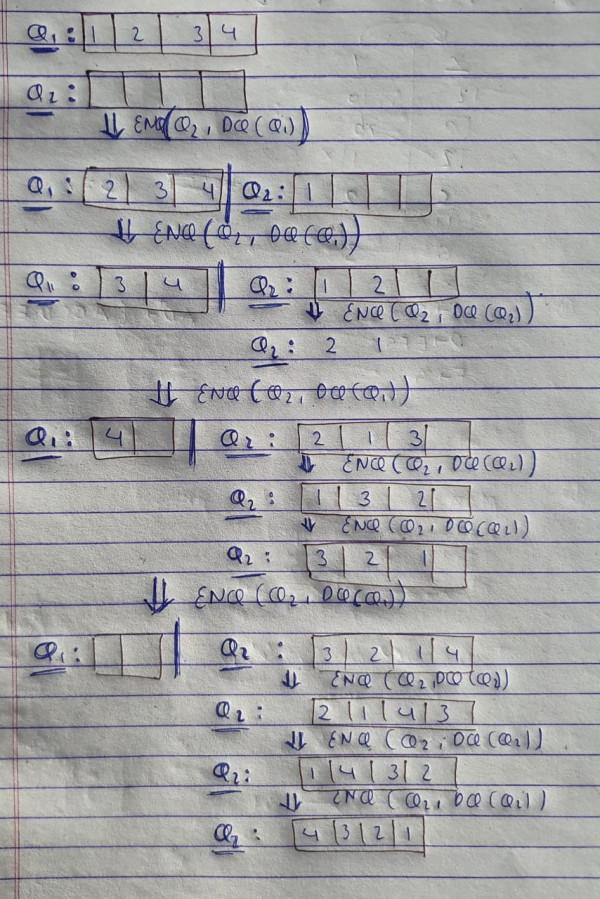 Q1: 1 2 3 4
Q2:
⇓ ENQ(Q2, DQ(Q1))
Q1: 2 3 4 | Q2: 1
⇓ ENQ(Q2, DQ(Q1))
Q1: 3 4 | Q2: 1 2
⇓ ENQ(Q2, DQ(Q2))
Q2: 2 1
⇓ ENQ(Q2, DQ(Q1))
Q1: 4 | Q2: 2 1 3
⇓ ENQ(Q2, DQ(Q2))
Q2: 1 3 2
⇓ ENQ(Q2, DQ(Q2))
Q2: 3 2 1
⇓ ENQ(Q2, DQ(Q1))
Q1: | Q2: 3 2 1 4
⇓ ENQ(Q2, DQ(Q2))
Q2: 2 1 4 3
⇓ ENQ(Q2, DQ(Q2))
Q2: 1 4 3 2
⇓ ENQ(Q2, DQ(Q2))
Q2: 4 3 2 1